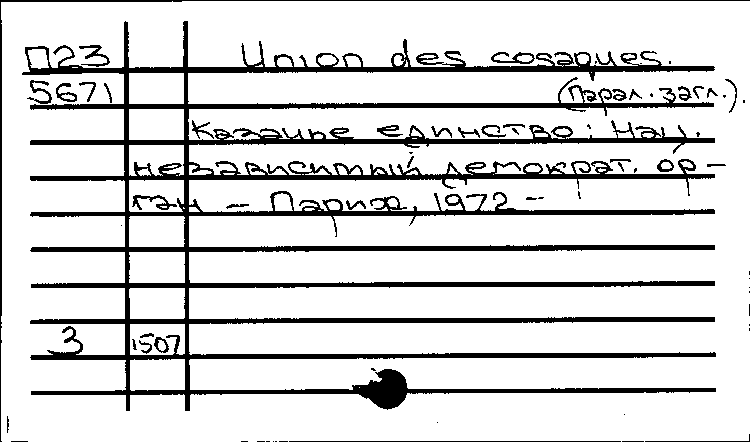 П23 Union des cosaques.
5671 (Парал. загл.).
Казачье единство: Нац.
независимый демократ. ор-
ган – Париж, 1972 –
3 1507